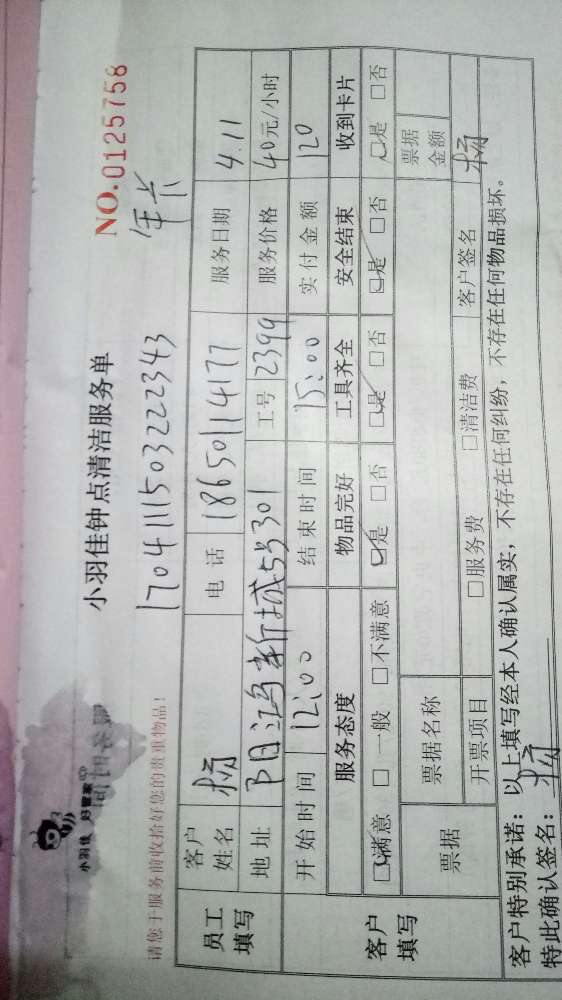 小羽佳 好管家
小羽佳钟点清洁服务单
NO.0125758
1704111503222343
年卡
请您于服务前收拾好您的贵重物品!
员工填写
客户姓名 杨 电话 18650114177 服务日期 4.11
地址 阳鸿新城5号301 工号 2399 服务价格 40元/小时
客户填写
开始时间 12:00 结束时间 15:00 实付金额 120
服务态度 物品完好 工具齐全 安全结束 收到卡片
☑满意 □一般 □不满意 ☑是 □否 ☑是 □否 ☑是 □否 ☑是 □否
票据 票据名称 票据金额
开票项目 □服务费 □清洁费 客户签名 杨
客户特别承诺:以上填写经本人确认属实,不存在任何纠纷,不存在任何物品损坏。
特此确认签名: 杨